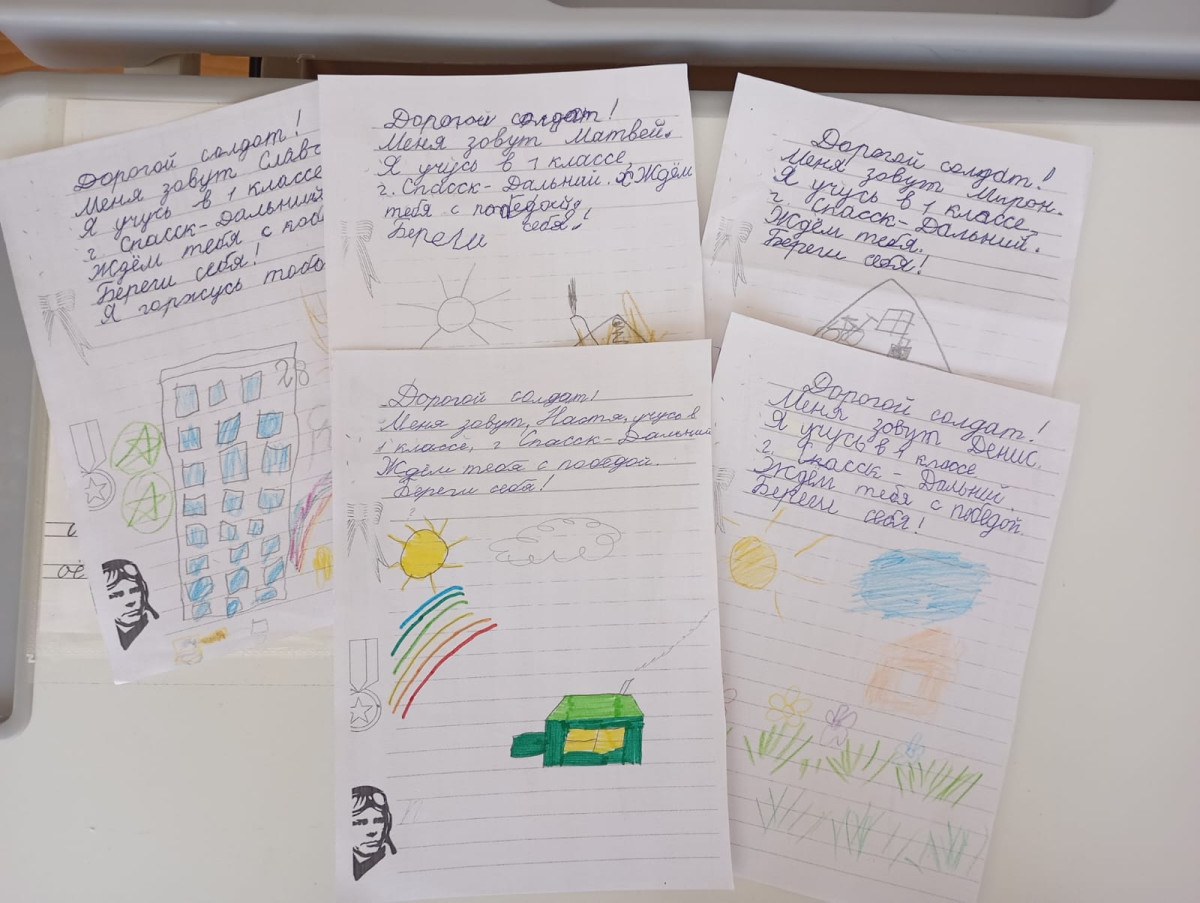 Дорогой солдат!
Меня зовут
Я учусь в 1 классе
г. Спасск-Дальний
Ждём тебя с
Береги себя!
Я горжусь
28
Дорогой солдат!
Меня зовут Матвей.
Я учусь в 1 классе,
г. Спасск-Дальний. Ждём
тебя с победой,
Береги себя!
Дорогой солдат!
Меня зовут Мирон.
Я учусь в 1 классе,
г. Спасск-Дальний.
Ждём тебя.
Береги себя!
Дорогой солдат!
Меня зовут, Настя, учусь в
1 классе, г Спасск-Дальний
Ждём тебя с победой.
Береги себя!
Дорогой солдат!
Меня зовут Денис.
Я учусь в 1 классе
г. Спасск-Дальний.
Ждём тебя с победой.
Береги себя!